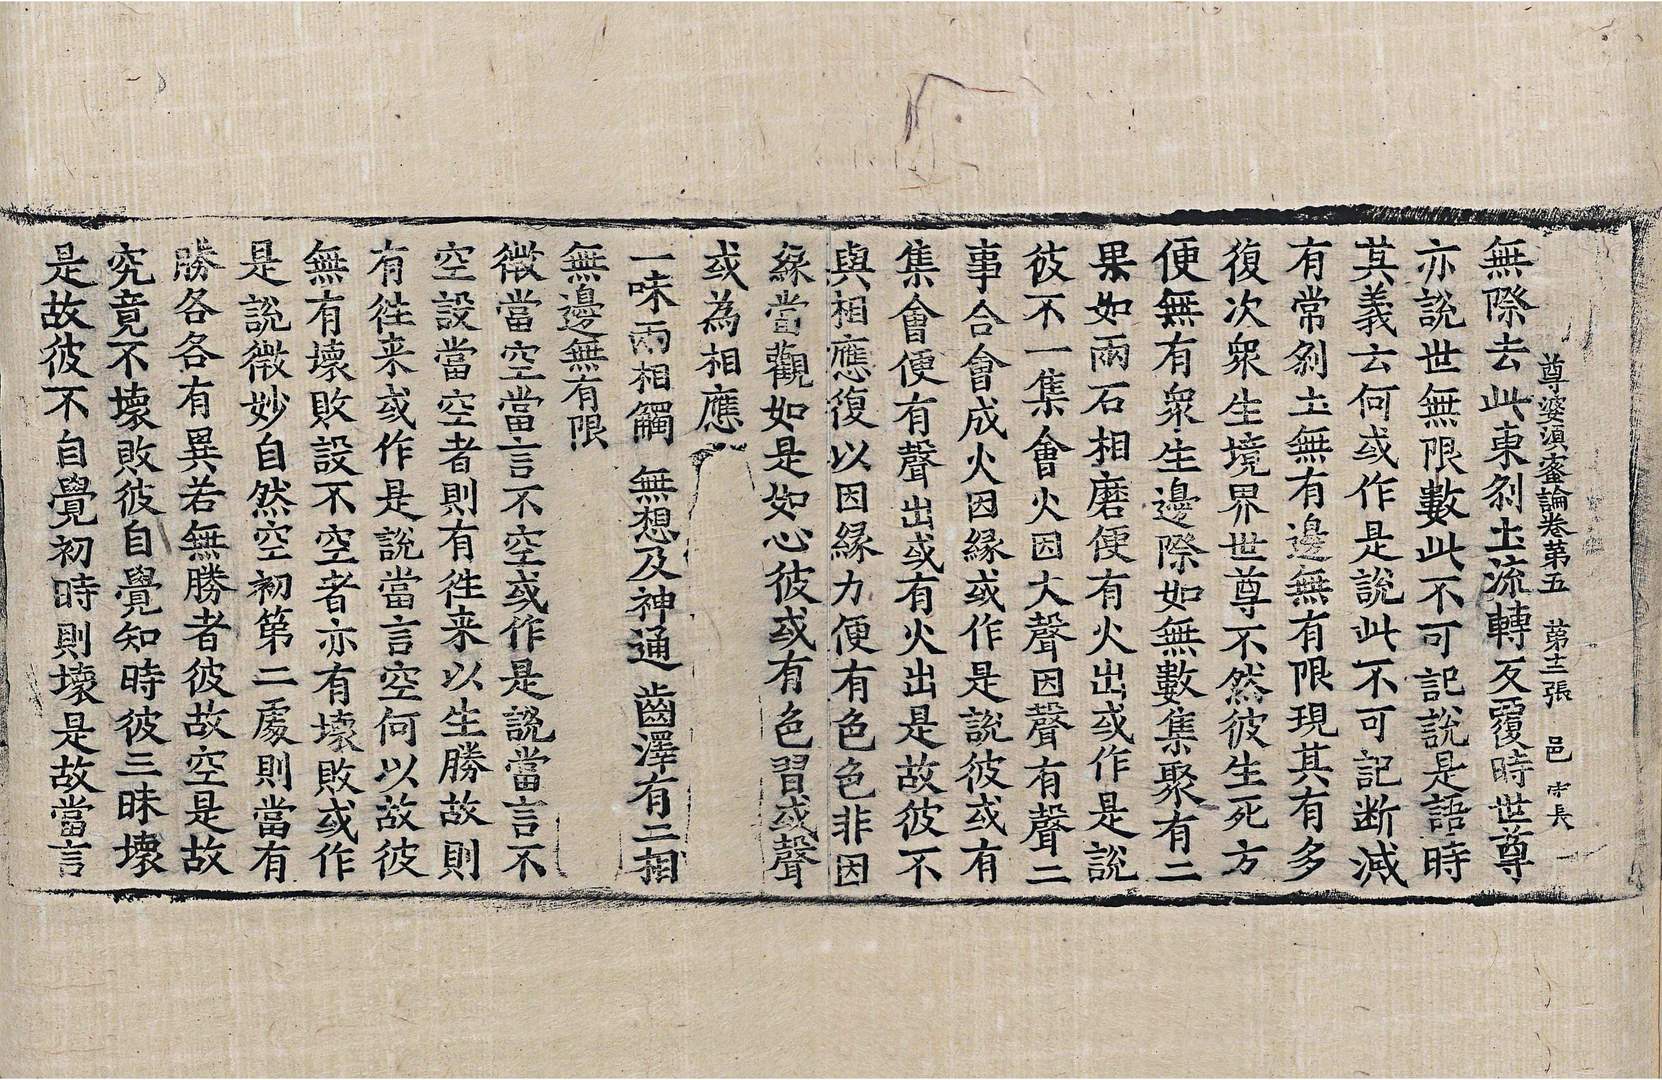 尊婆須蜜論卷第五　第十二張　邑
無際去此東刹土流轉反覆時世尊
亦說世無限數此不可記說是語時
其義云何或作是說此不可記断滅
有常刹土無有邊無有限現其有多
復次衆生境界世尊不然彼生死方
便無有衆生邊際如無數集聚有二
果如兩石相磨便有火出或作是說
彼不一集會火因大聲因聲有聲二
事合會成火因縁或作是說彼或有
集會便有聲出或有火出是故彼不
與相應復以因縁力便有色色非因
緣當觀如是如心彼或有色習或聲
或為相應
一味兩相觸　無想及神通　齒澤有二相
無邊無有限
微當空當言不空或作是說當言不
空設當空者則有徃来以生勝故則
有徃来或作是說當言空何以故彼
無有壞敗設不空者亦有壞敗或作
是說微妙自然空初第二處則當有
勝各各有異若無勝者彼故空是故
究竟不壞敗彼自覺知時彼三昧壞
是故彼不自覺初時則壞是故當言